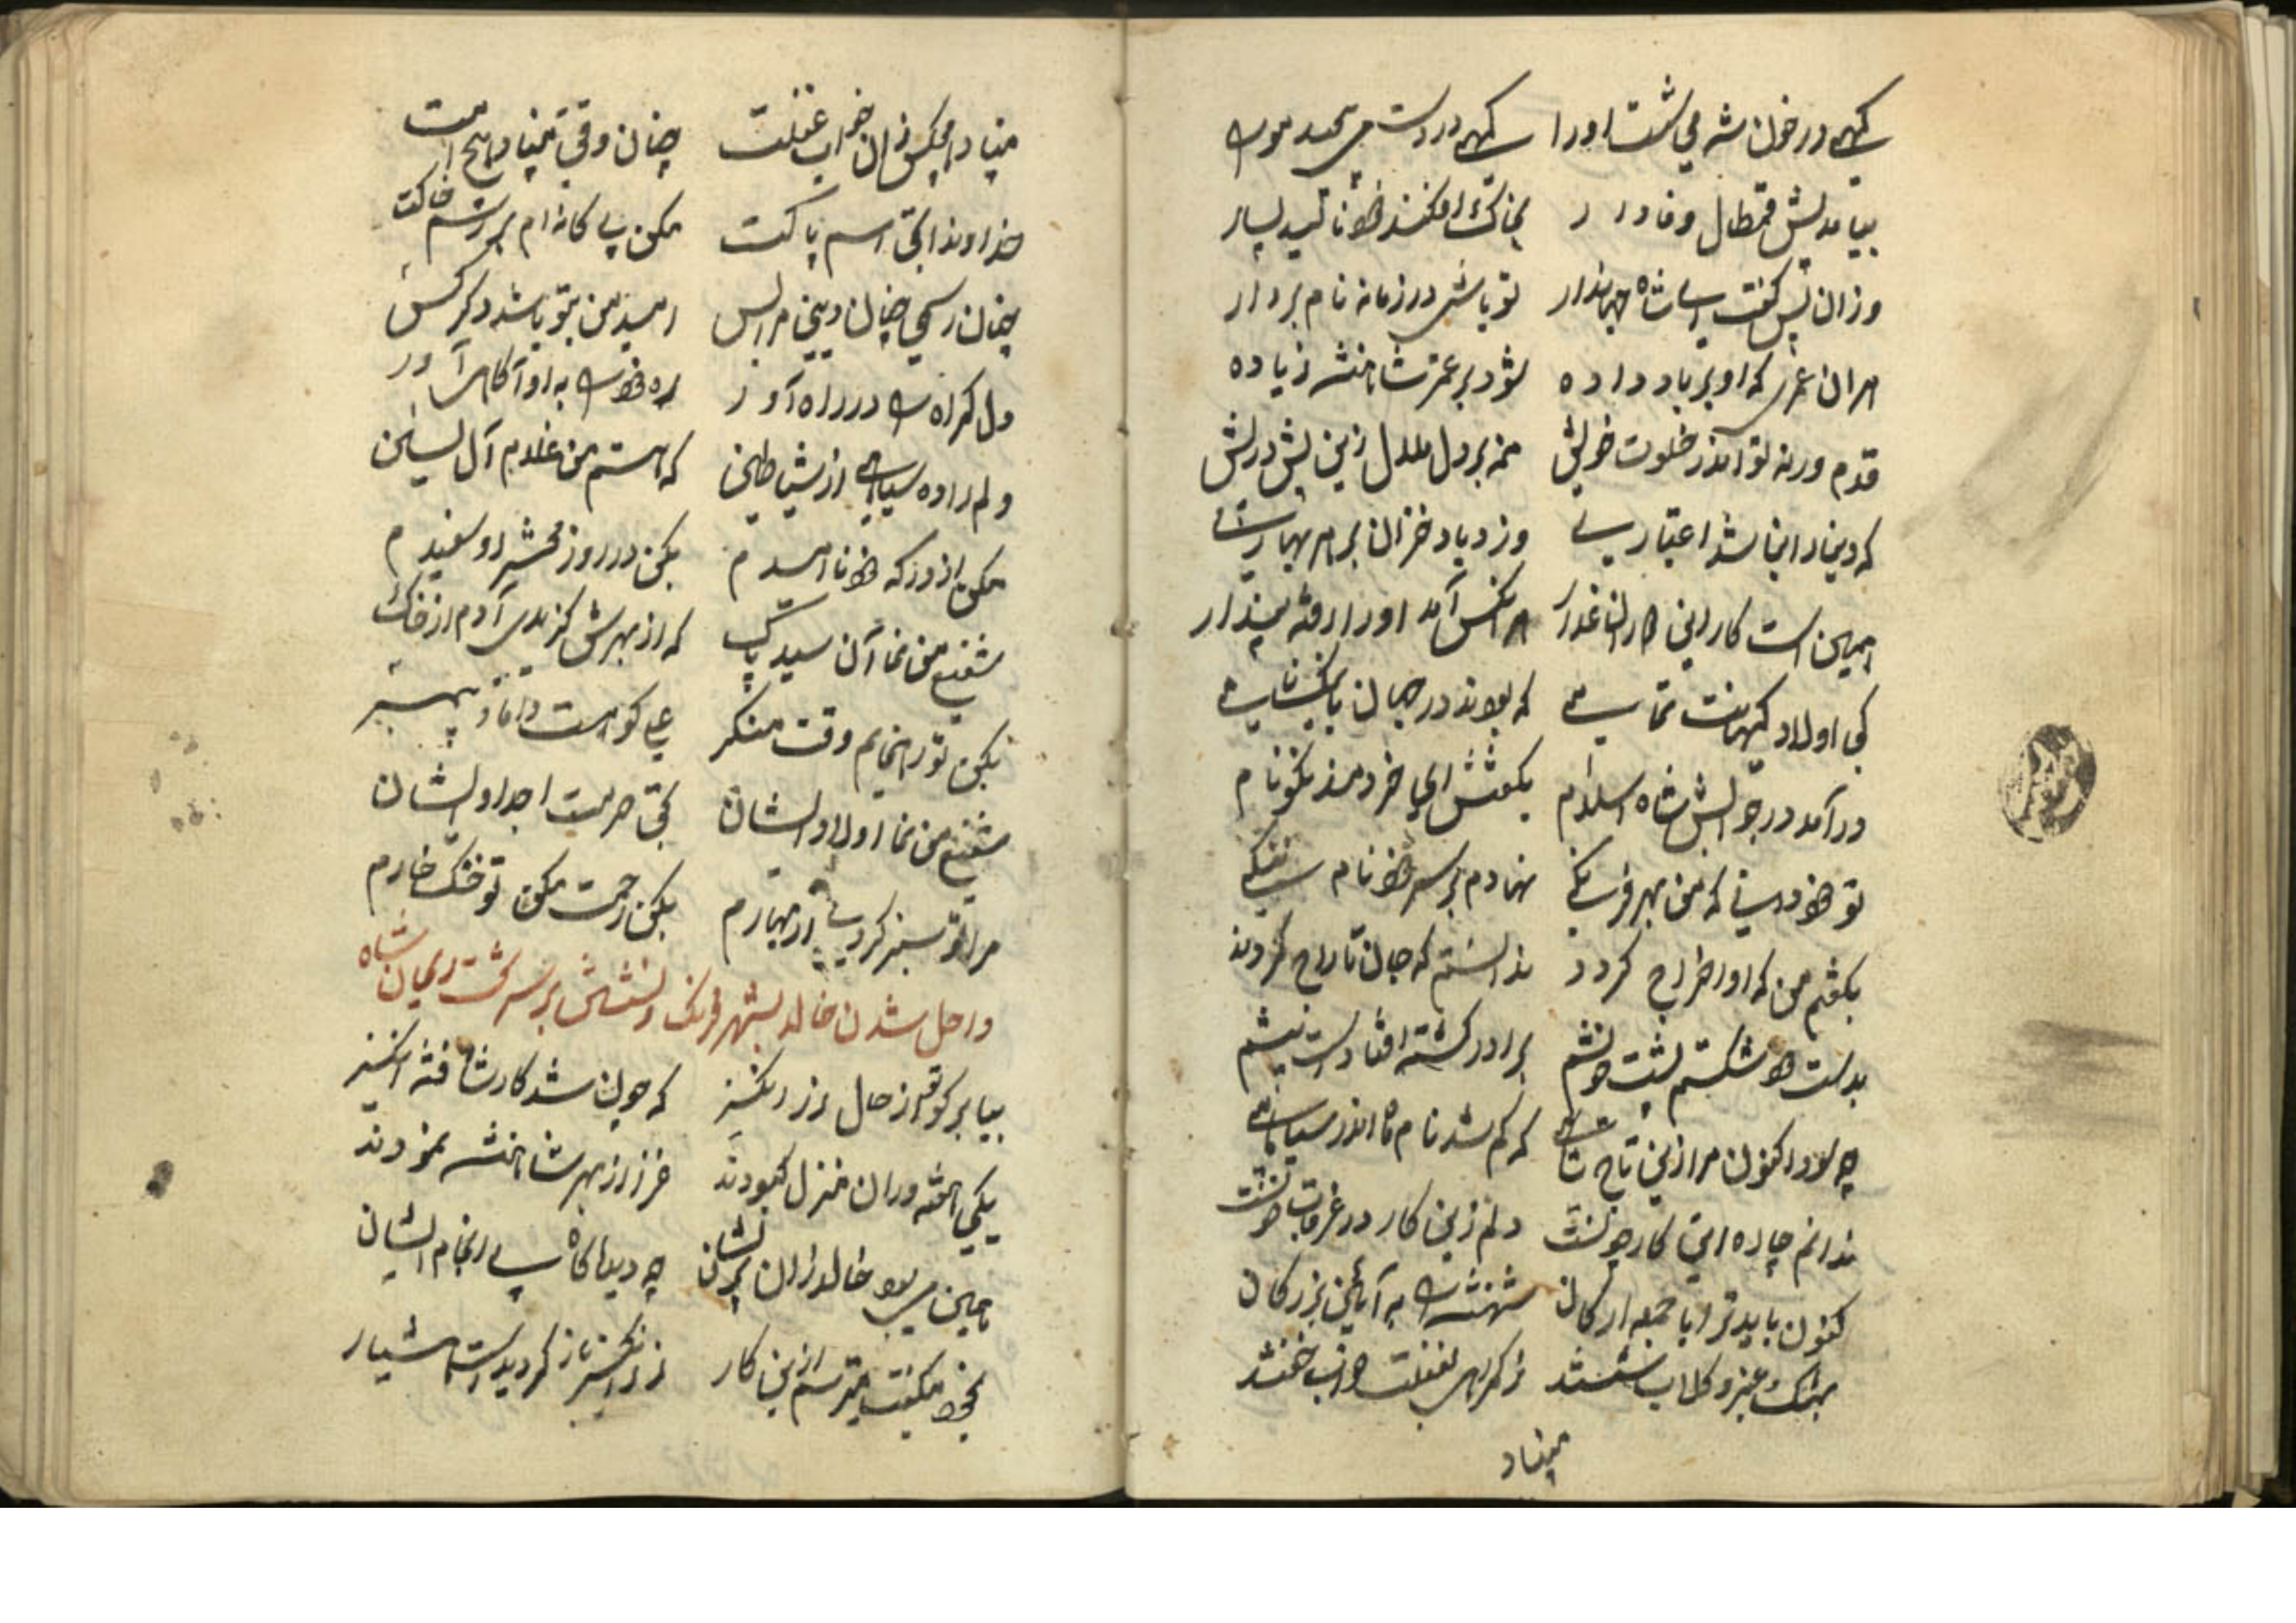 کهی در خون شه می شست او را کهی در دست می
بیامد پیش قمطال وفادار بخاک افکند خود نالید بسیار
وزان پس گفت ای شاه جهاندار تو باشی در زمانه نام بردار
هران عمری که او بر باد داده شود بر عمر شاهنشه زیاده
قدم ورنه تو اندر خلوت خویش منه بر دل ملال زین پیش
که دنیا را نباشد اعتباری وزد باد خزان بر هر بهاری
همین است کار این دار الغدار هر آنکس آمد او را رفته پندار
کی اولاد کیهانت تمامی که بودند در جهان با نیکنامی
در آمد در جوابش شاه اسلام بگفتش ای خردمند نکونام
تو خود دانی که من بهر فرنگی نهادم بر سر خود نام ننگی
بگفتم من که او اخراج گردد ندانستم که جان تاراج گردد
بدست خود شکستم پشت خویشم برادر کشته افتاد است پیشم
چه سود اکنون مرا زین تاج شاهی که گم شد نام ما اندر سیاهی
ندانم چاره این کار چونست دلم زین کار در غرقاب خونست
کنون باید ترا با جمع ارکان شهنشه را به آیین بزرگان
بمشک و عنبر و گلاب شستند ز گمراهی بغفلت خواب
مبناد
مبناد هیچکس زان خواب غفلت چنان وقتی مبناد هیچ امت
خداوندا بحق اسم پاکت مکن بیگانه ام بر رسم خاکت
چنان رسمی چنان دینی مرا بس امید من بتو باشد دگر کس
دل گمراه را در راه آور ره خود را به او آگاهی آور
دلم داده سیاهی از شیاطین که هستم من غلام آل یاسین
مکن از درگه خود ناامیدم بکن در روز محشر رو سفیدم
شفیع من نما آن سید پاک که از بهرش گزیدی آدم از خاک
بکن تو رهنمایم وقت منکر علی کو هست داماد پیمبر
شفیع من نما اولاد ایشان بحق حرمت اجداد ایشان
مرا تو سبز کردی از بهارم بکن رحمت مکن تو خشک خارم
داخل شدن خالد بشهر فرنک و نشستن بر سر تخت ریحان شاه
بیا بر کو تو از حال زر انگیز که چون شد کار شاه فتنه انگیز
یکی هفته در آن منزل غنودند عزا از بهر شاهنشه نمودند
همین می بود خالد زان پریشان چه دیدا کاه سرانجام ایشان
بخود میگفت میترسم ازین کار زر انگیز باز گردید است هشیار